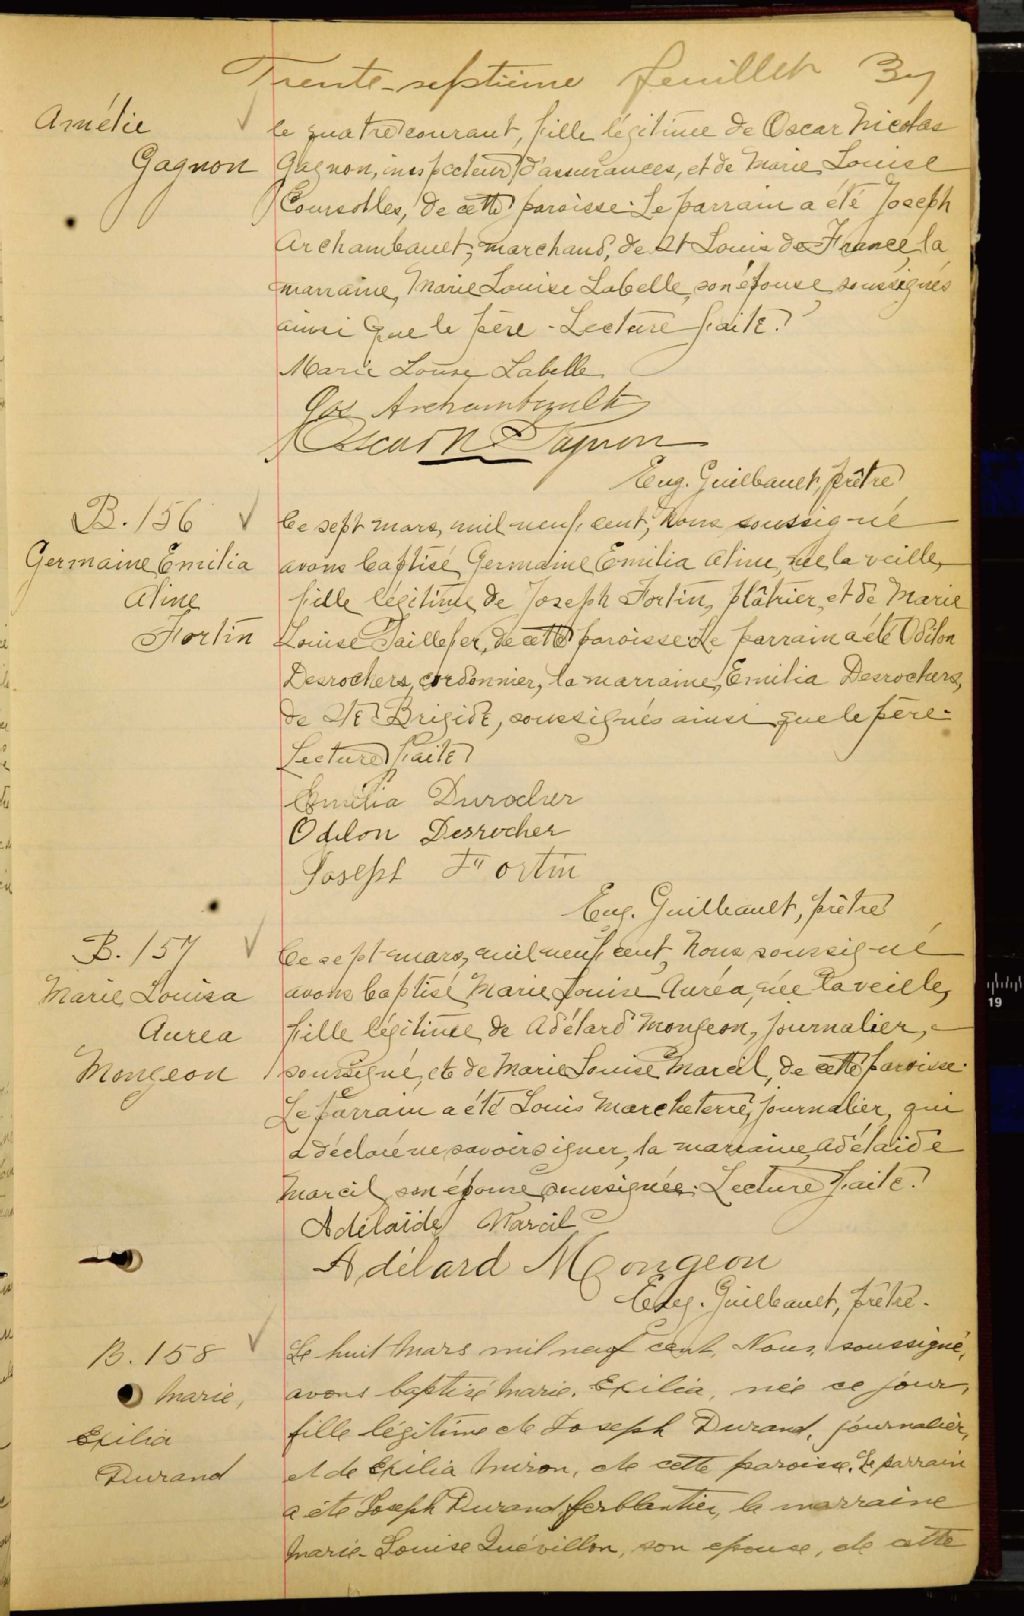 Trente-septième feuillet 37
Amélie
Gagnon
le quatre courant, fille légitime de Oscar Nicolas
Gagnon, inspecteur d'assurances, et de Marie Louise
Coursolles, de cette paroisse. Le parrain a été Joseph
Archambault, marchand, de St Louis de France, la
marraine, Marie Louise Labelle, son épouse, soussignés
ainsi que le père - Lecture faite.
Marie Louise Labelle
Jos Archambault
Oscar N Gagnon
Eug. Guilbault, prêtre
B. 156
Germaine Emilia
Aline
Fortin
Ce sept mars, mil neuf cent, Nous soussigné
avons baptisé Germaine Emilia Aline, née la veille,
fille légitime de Joseph Fortin, plâtrier, et de Marie
Louise Taillefer, de cette paroisse. Le parrain a été Odilon
Desrochers, cordonnier, la marraine, Emilia Desrochers,
de Ste Brigide, soussignés ainsi que le père.
Lecture faite
Emilia Durocher
Odilon Desrocher
Joseph Fortin
Eug. Guilbault, prêtre
B. 157
Marie Louisa
Aurea
Mongeon
Ce sept mars, mil neuf cent, Nous soussigné
avons baptisé Marie Louise Auréa, née la veille,
fille légitime de Adélard Mongeon, journalier,
soussigné, et de Marie Louise Marcil, de cette paroisse.
Le parrain a été Louis Marcheterre, journalier, qui
a déclaré ne savoir signer, la marraine, Adélaïde
Marcil, son épouse soussignée. Lecture faite.
Adélaide Marcil
Adélard Mongeon
Eug. Guilbault, prêtre.
B. 158
Marie,
Exilia
Durand
Le huit Mars mil neuf cent, Nous, soussigné,
avons baptisé Marie, Exilia, née ce jour,
fille légitime de Joseph Durand, journalier,
et de Exilia Miron, de cette paroisse. Le parrain
a été Joseph Durand ferblantier, la marraine
Marie-Louise Quévillon, son epouse, de cette
19